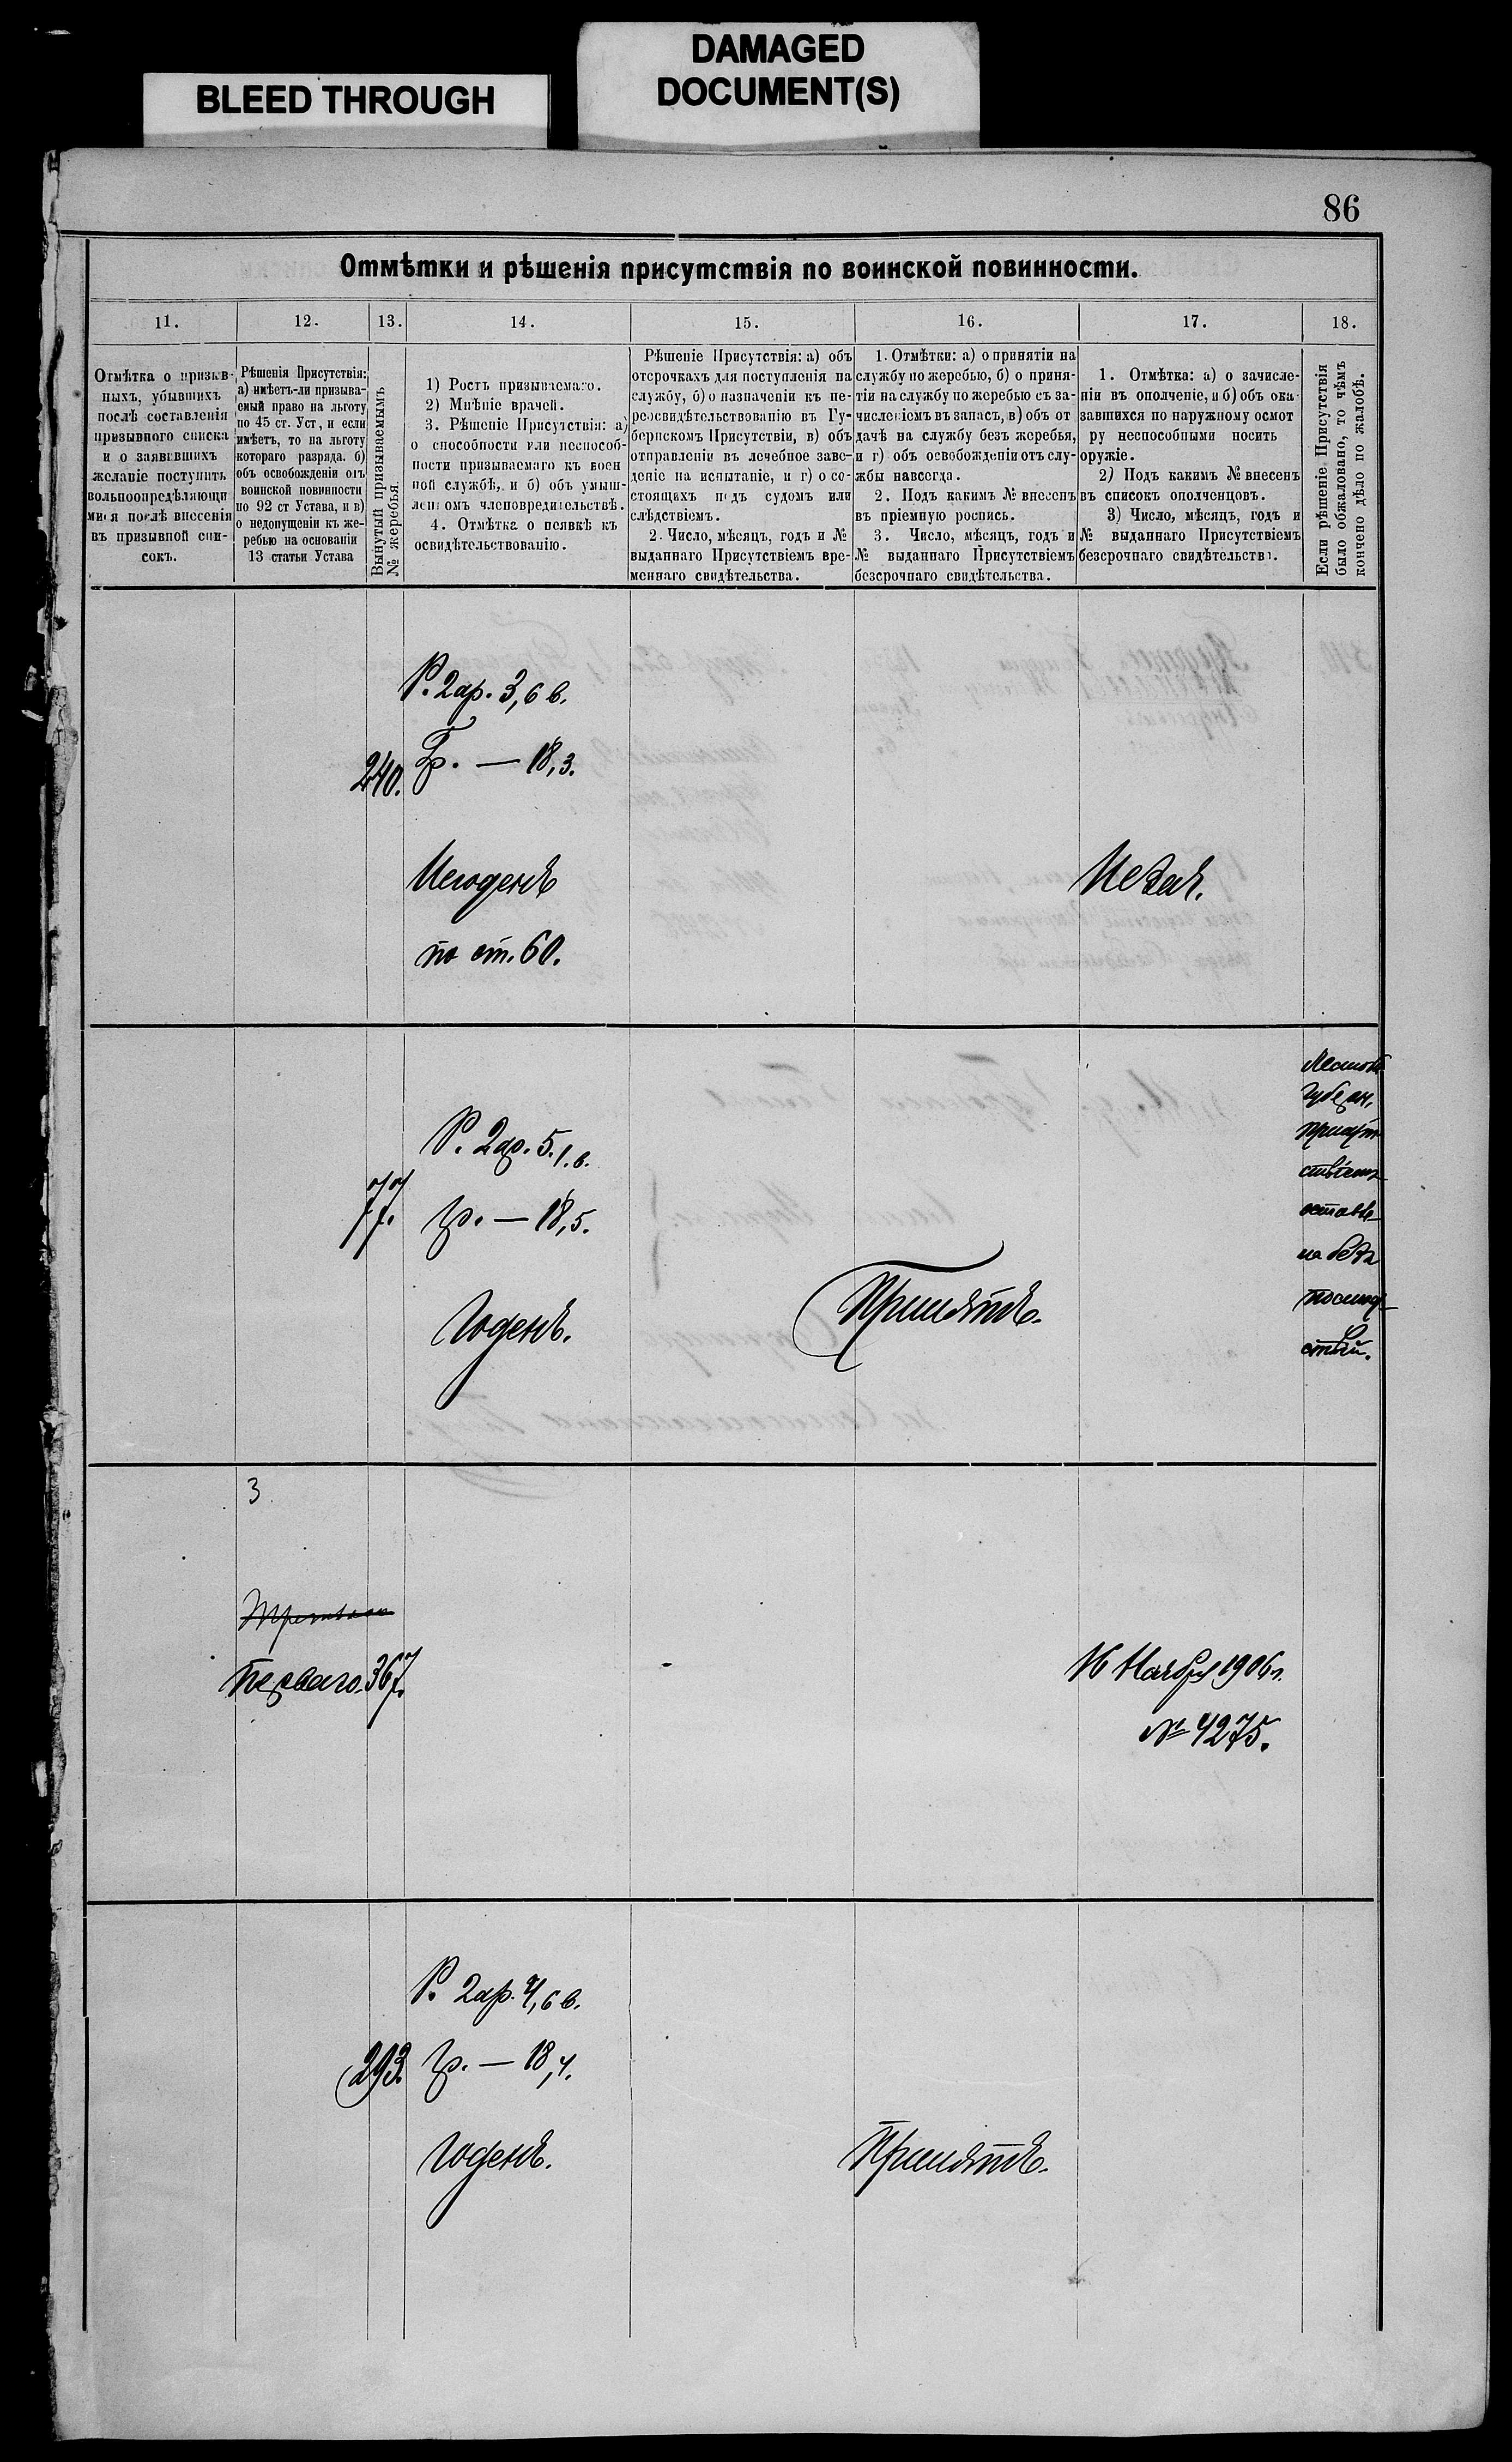 BLEED THROUGH
DAMAGED
DOCUMENT(S)
86
Отмѣтки и рѣшенія присутствія по воинской повинности.
11. 12. 13. 14. 15. 16. 17. 18.
Отмѣтка о призыв-
ныхъ, убывшихъ
послѣ составленія
призывного списка
и о заявившихъ
желаніе поступить
вольноопредѣляющи
мися послѣ внесенія
въ призывной спи-
сокъ.
Рѣшенія Присутствія:
а) имѣетъ-ли призыва-
емый право на льготу
по 45 ст. Уст, и если
имѣетъ, то на льготу
котораго разряда. б)
объ освобожденіи отъ
воинской повинности
по 92 ст Устава, и в)
о недопущеніи къ же-
ребью на основаніи
13 статьи Устава
Вынутый призываемымъ
№ жеребья.
1) Ростъ призываемаго.
2) Мнѣніе врачей.
3. Рѣшеніе Присутствія: а)
о способности или неспособ-
ности призываемаго къ воен
ной службѣ, и б) объ умыш-
ленномъ членовредительствѣ.
4. Отмѣтка о неявкѣ къ
освидѣтельствованію.
Рѣшеніе Присутствія: а) объ
отсрочкахъ для поступленія на
службу, б) о назначеніи къ пе-
реосвидѣтельствованію въ Гу-
бернскомъ Присутствіи, в) объ
отправленіи въ лечебное заве-
деніе на испытаніе, и г) о со-
стоящихъ подъ судомъ или
слѣдствіемъ.
2. Число, мѣсяцъ, годъ и №
выданнаго Присутствіемъ вре-
меннаго свидѣтельства.
1. Отмѣтки: а) о принятіи на
службу по жеребью, б) о приня-
тіи на службу по жеребью съ за-
численіемъ въ запасъ, в) объ от
дачѣ на службу безъ жеребья,
и г) объ освобожденіи отъ слу-
жбы навсегда.
2. Подъ какимъ № внесенъ
въ пріемную роспись.
3. Число, мѣсяцъ, годъ и
№ выданнаго Присутствіемъ
безсрочнаго свидѣтельства.
1. Отмѣтка: а) о зачисле-
ніи въ ополченіе, и б) объ ока
завшихся по наружному осмот
ру неспособными носить
оружіе.
2) Подъ какимъ № внесенъ
въ списокъ ополченцовъ.
3) Число, мѣсяцъ, годъ и
№ выданнаго Присутствіемъ
безсрочнаго свидѣтельства.
Если рѣшеніе Присутствія
было обжаловано, то чѣмъ
кончено дѣло по жалобѣ.
240.
Р. 2 ар. 3,6 в.
Гр. — 18,3.
Негоденъ
по ст. 60.
77.
Р. 2 ар. 5.1. в.
гр. — 18,5.
Годенъ.
Принятъ.
губерн.
присут
ствіемъ
оставле
на безъ
послѣд
ствій.
3
Перваго.
367.
16 Ноября 1906 г.
№ 4275.
293.
Р. 2 ар. 4,6 в.
гр. — 18,4.
Годенъ.
Принятъ.